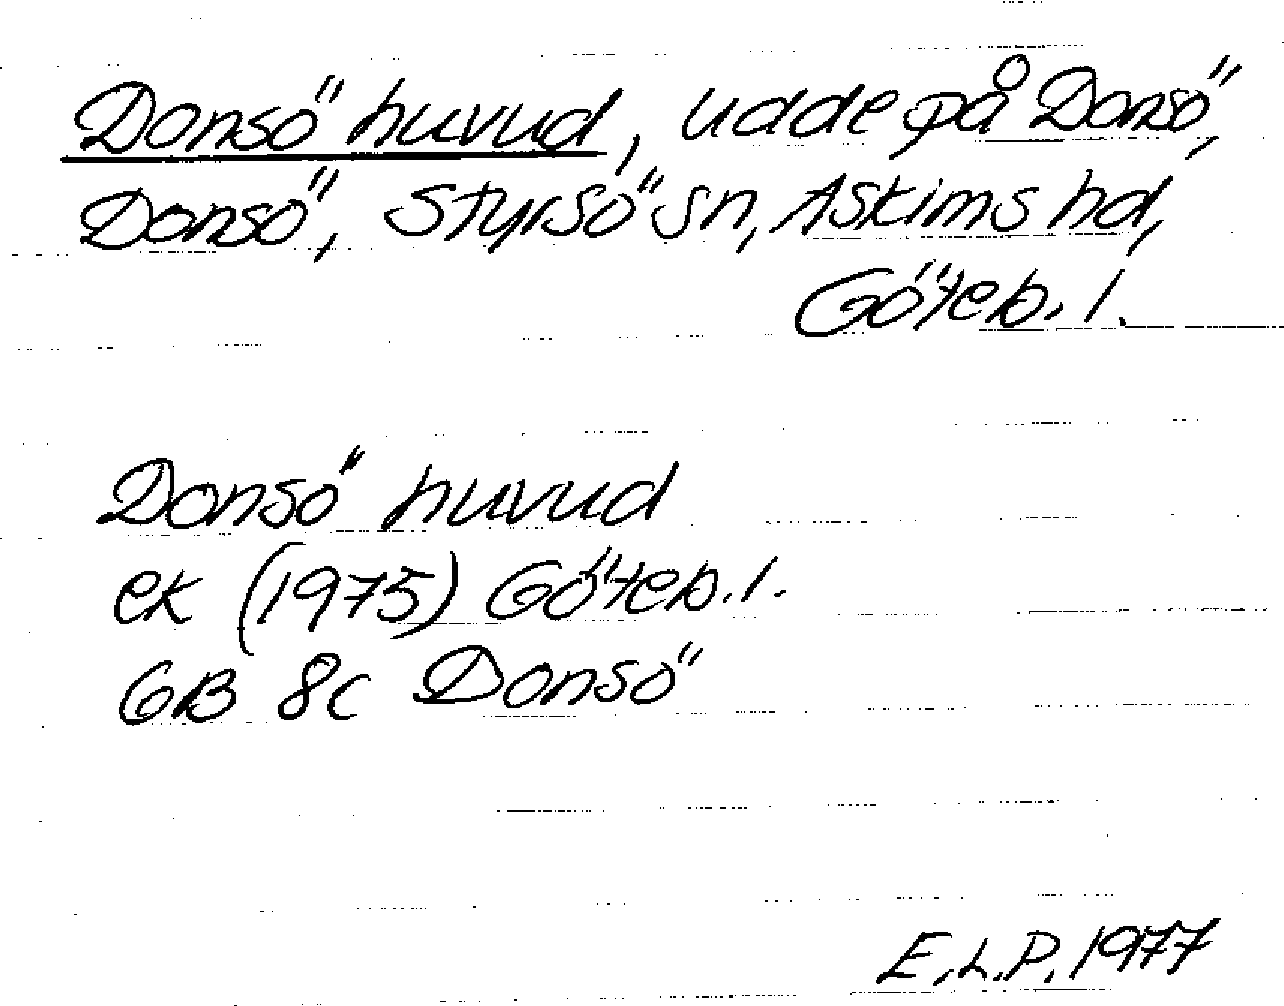 Donsö huvud, udde på Donsö,
Donsö, Styrsö sn, Askims hd,
Göteb. l.
Donsö huvud
ek (1975) Göteb. l.
GB 8c Donsö
E.L.P. 1977